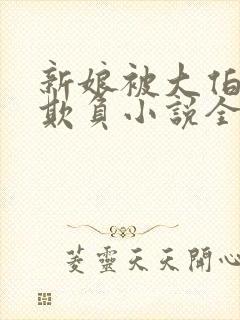 新娘被大伯
欺負小說全
菱靈天天開心